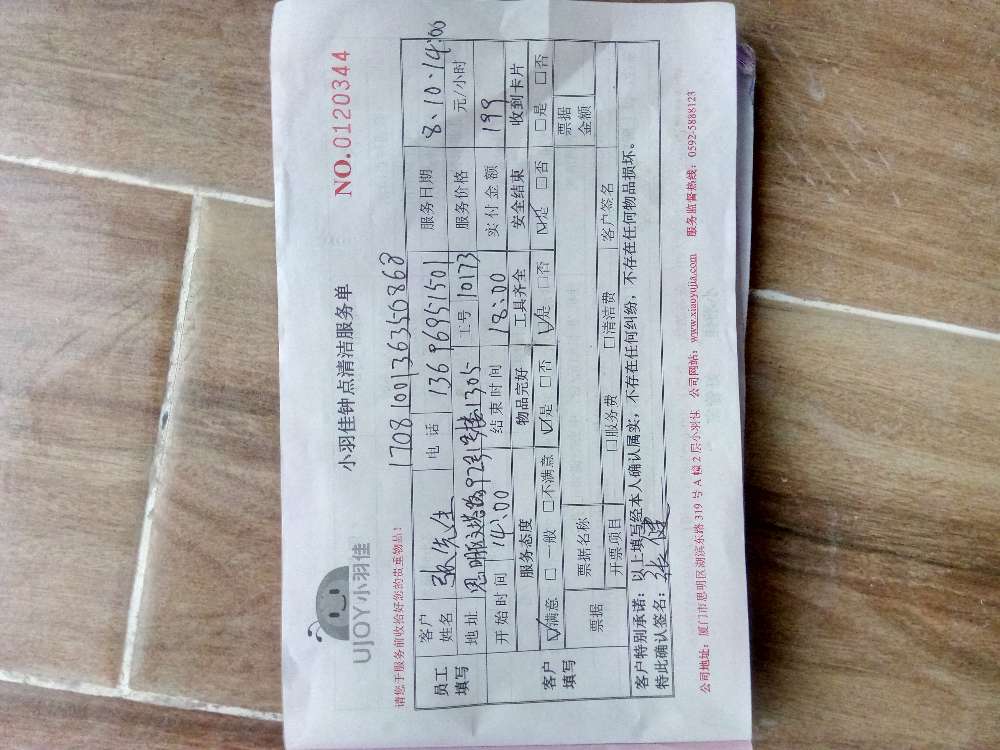 UJOY小羽佳
小羽佳钟点清洁服务单
NO.0120344
请您于服务前收拾好您的贵重物品!
1708100136356868
员工填写
客户姓名 张先生 电话 13696951501 服务日期 8.10.14:00
地址 思明区 92号 1305 工号 10173 服务价格 元/小时
开始时间 14:00 结束时间 18:00 实付金额 199
客户填写
服务态度 物品完好 工具齐全 安全结束 收到卡片
☑满意 □一般 □不满意 ☑是 □否 ☑是 □否 ☑是 □否 □是 □否
票据 票据名称 票据金额
开票项目 □服务费 □清洁费 客户签名
客户特别承诺:以上填写经本人确认属实,不存在任何纠纷,不存在任何物品损坏。
特此确认签名:张
公司地址:厦门市思明区湖滨东路319号A幢2层小羽佳 公司网站:www.xiaoyujia.com 服务监督热线:0592-5888123